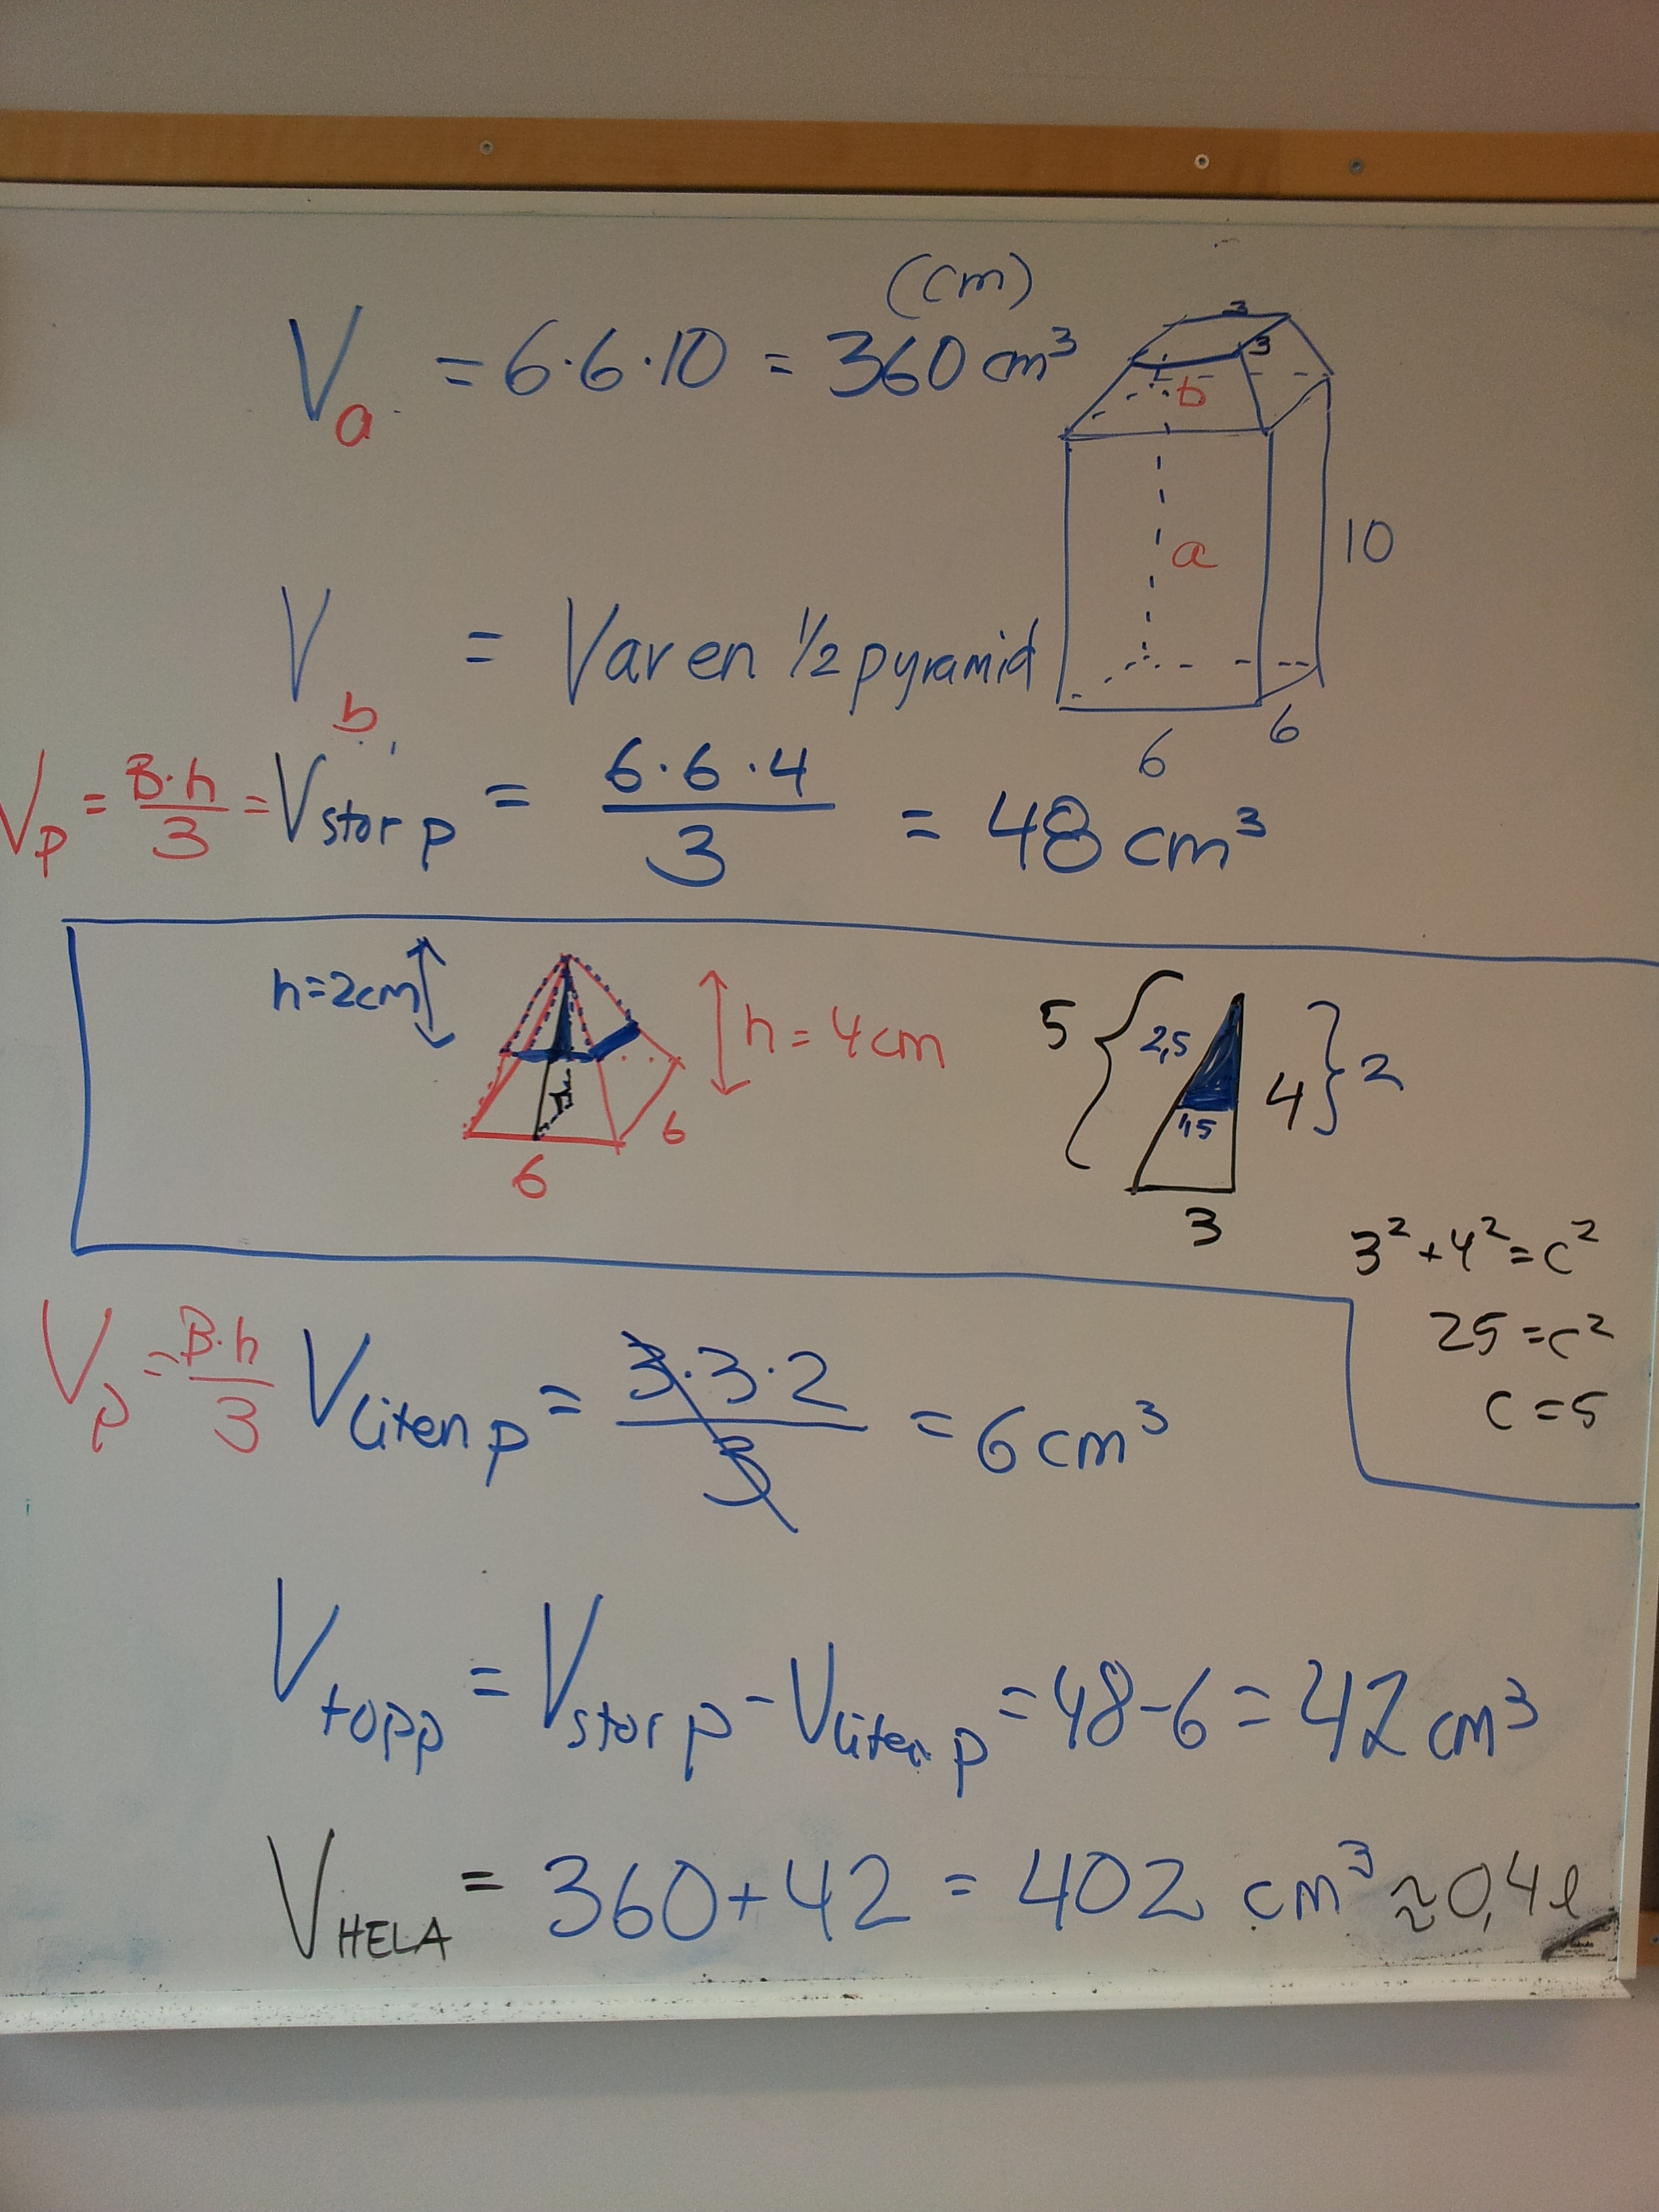 (cm)
Va = 6·6·10 = 360 cm³
3
3
b
a
10
6
6
Vb = Var en 1/2 pyramid
Vp = B·h/3 = Vstor p = 6·6·4/3 = 48 cm³
h=2cm
h=4cm
6
6
5
2,5
1,5
4
2
3
3²+4²=c²
25=c²
c=5
Vp = B·h/3 Vliten p = 3·3·2/3 = 6 cm³
Vtopp = Vstor p - Vliten p = 48-6 = 42 cm³
VHELA = 360+42 = 402 cm³ ≈ 0,4 l